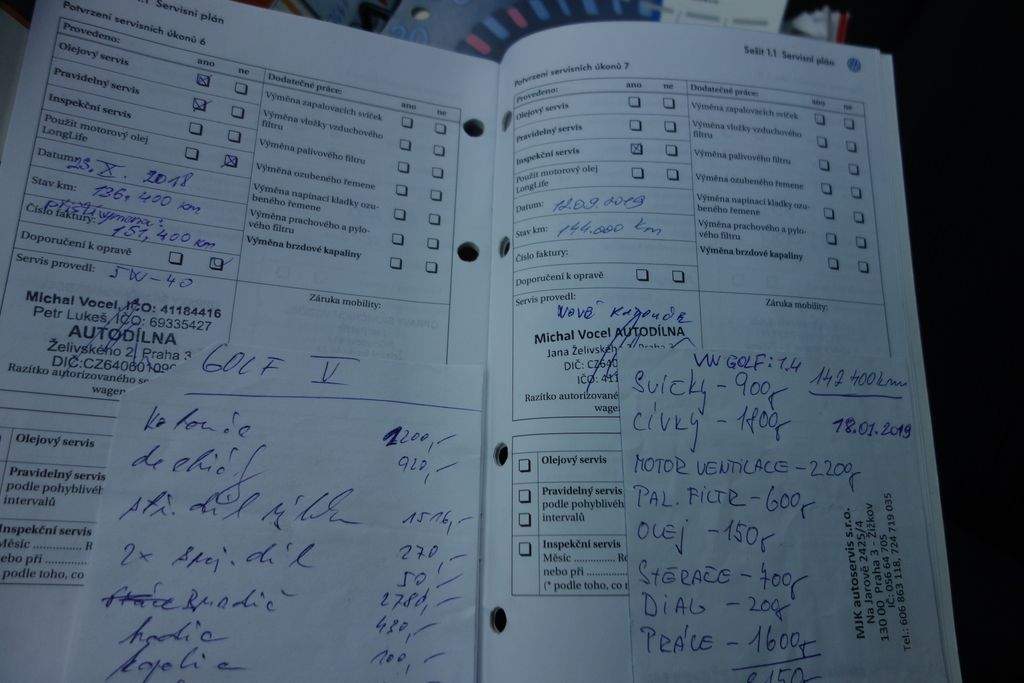 .1 Servisní plán
Potvrzení servisních úkonů 6
Provedeno:
ano
ne
Dodatečné práce:
ano
ne
Olejový servis
Pravidelný servis
Inspekční servis
Použit motorový olej
LongLife
Datum: 23. X. 2018
Stav km: 136.400 km
příští výměna:
Číslo faktury: 151,400 km
Doporučení k opravě
Servis provedl: 5W-40
Výměna zapalovacích svíček
Výměna vložky vzduchového
filtru
Výměna palivového filtru
Výměna ozubeného řemene
Výměna napínací kladky ozu-
beného řemene
Výměna prachového a pylo-
vého filtru
Výměna brzdové kapaliny
Záruka mobility:
Michal Vocel, IČO: 41184416
Petr Lukeš, IČO: 69335427
AUTODÍLNA
Želivského 2, Praha 3
DIČ:CZ640601090
Razítko autorizovaného s
wagen
Olejový servis
Pravidelný servis
podle pohyblivéh
intervalů
Inspekční servis
Měsíc .............. R
nebo při
podle toho, co
GOLF V
1200,-
920,-
1516,-
2x spoj. díl 270,-
50,-
2780,-
430,-
100,-
Sešit 1.1 Servisní plán
Potvrzení servisních úkonů 7
Provedeno:
ano
ne
Dodatečné práce:
ano
ne
Olejový servis
Pravidelný servis
Inspekční servis
Použit motorový olej
LongLife
Datum: 12.09.2019
Stav km: 144.000 km
Číslo faktury:
Doporučení k opravě
Servis provedl:
Výměna zapalovacích svíček
Výměna vložky vzduchového
filtru
Výměna palivového filtru
Výměna ozubeného řemene
Výměna napínací kladky ozu-
beného řemene
Výměna prachového a pylo-
vého filtru
Výměna brzdové kapaliny
Záruka mobility:
Nově
Michal Vocel AUTODÍLNA
Jana Želivského 2, Praha 3
DIČ: CZ640
IČO: 411
Razítko autorizované
wage
Olejový servis
Pravidelný servis
podle pohyblivéh
intervalů
Inspekční servis
Měsíc .............. Ro
nebo při
(* podle toho, co n
VW GOLF: 1.4
142 400 km
SVÍČKY - 900,-
CÍVKY - 1800,-
18.01.2019
MOTOR VENTILACE - 2200,-
PAL. FILTR - 600,-
OLEJ - 150,-
STĚRAČE - 700,-
DIAG - 200,-
PRÁCE - 1600,-
8150,-
MJK autoservis s.r.o.
Na Jarově 2425/4
130 00 Praha 3 - Žižkov
IČ: 056 64 705
Tel.: 606 863 118, 724 719 035